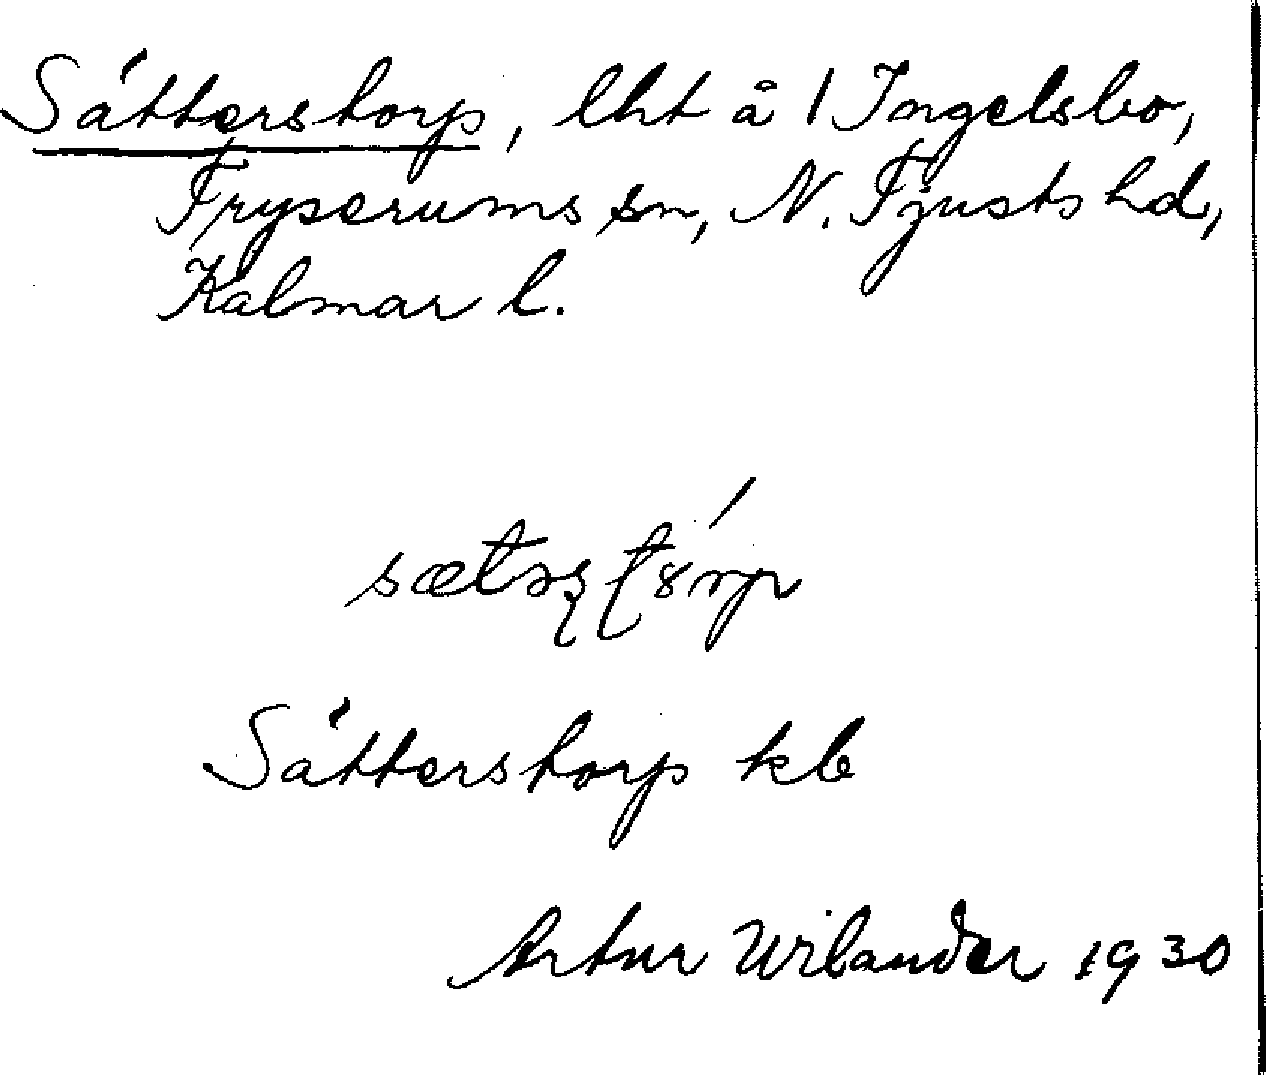 Sätterstorp, lht å 1 Ingelsbo,
Tryserums sn, N. Tjusts hd,
Kalmar l.
Sätterstorp kb
Artur Wilander 1930